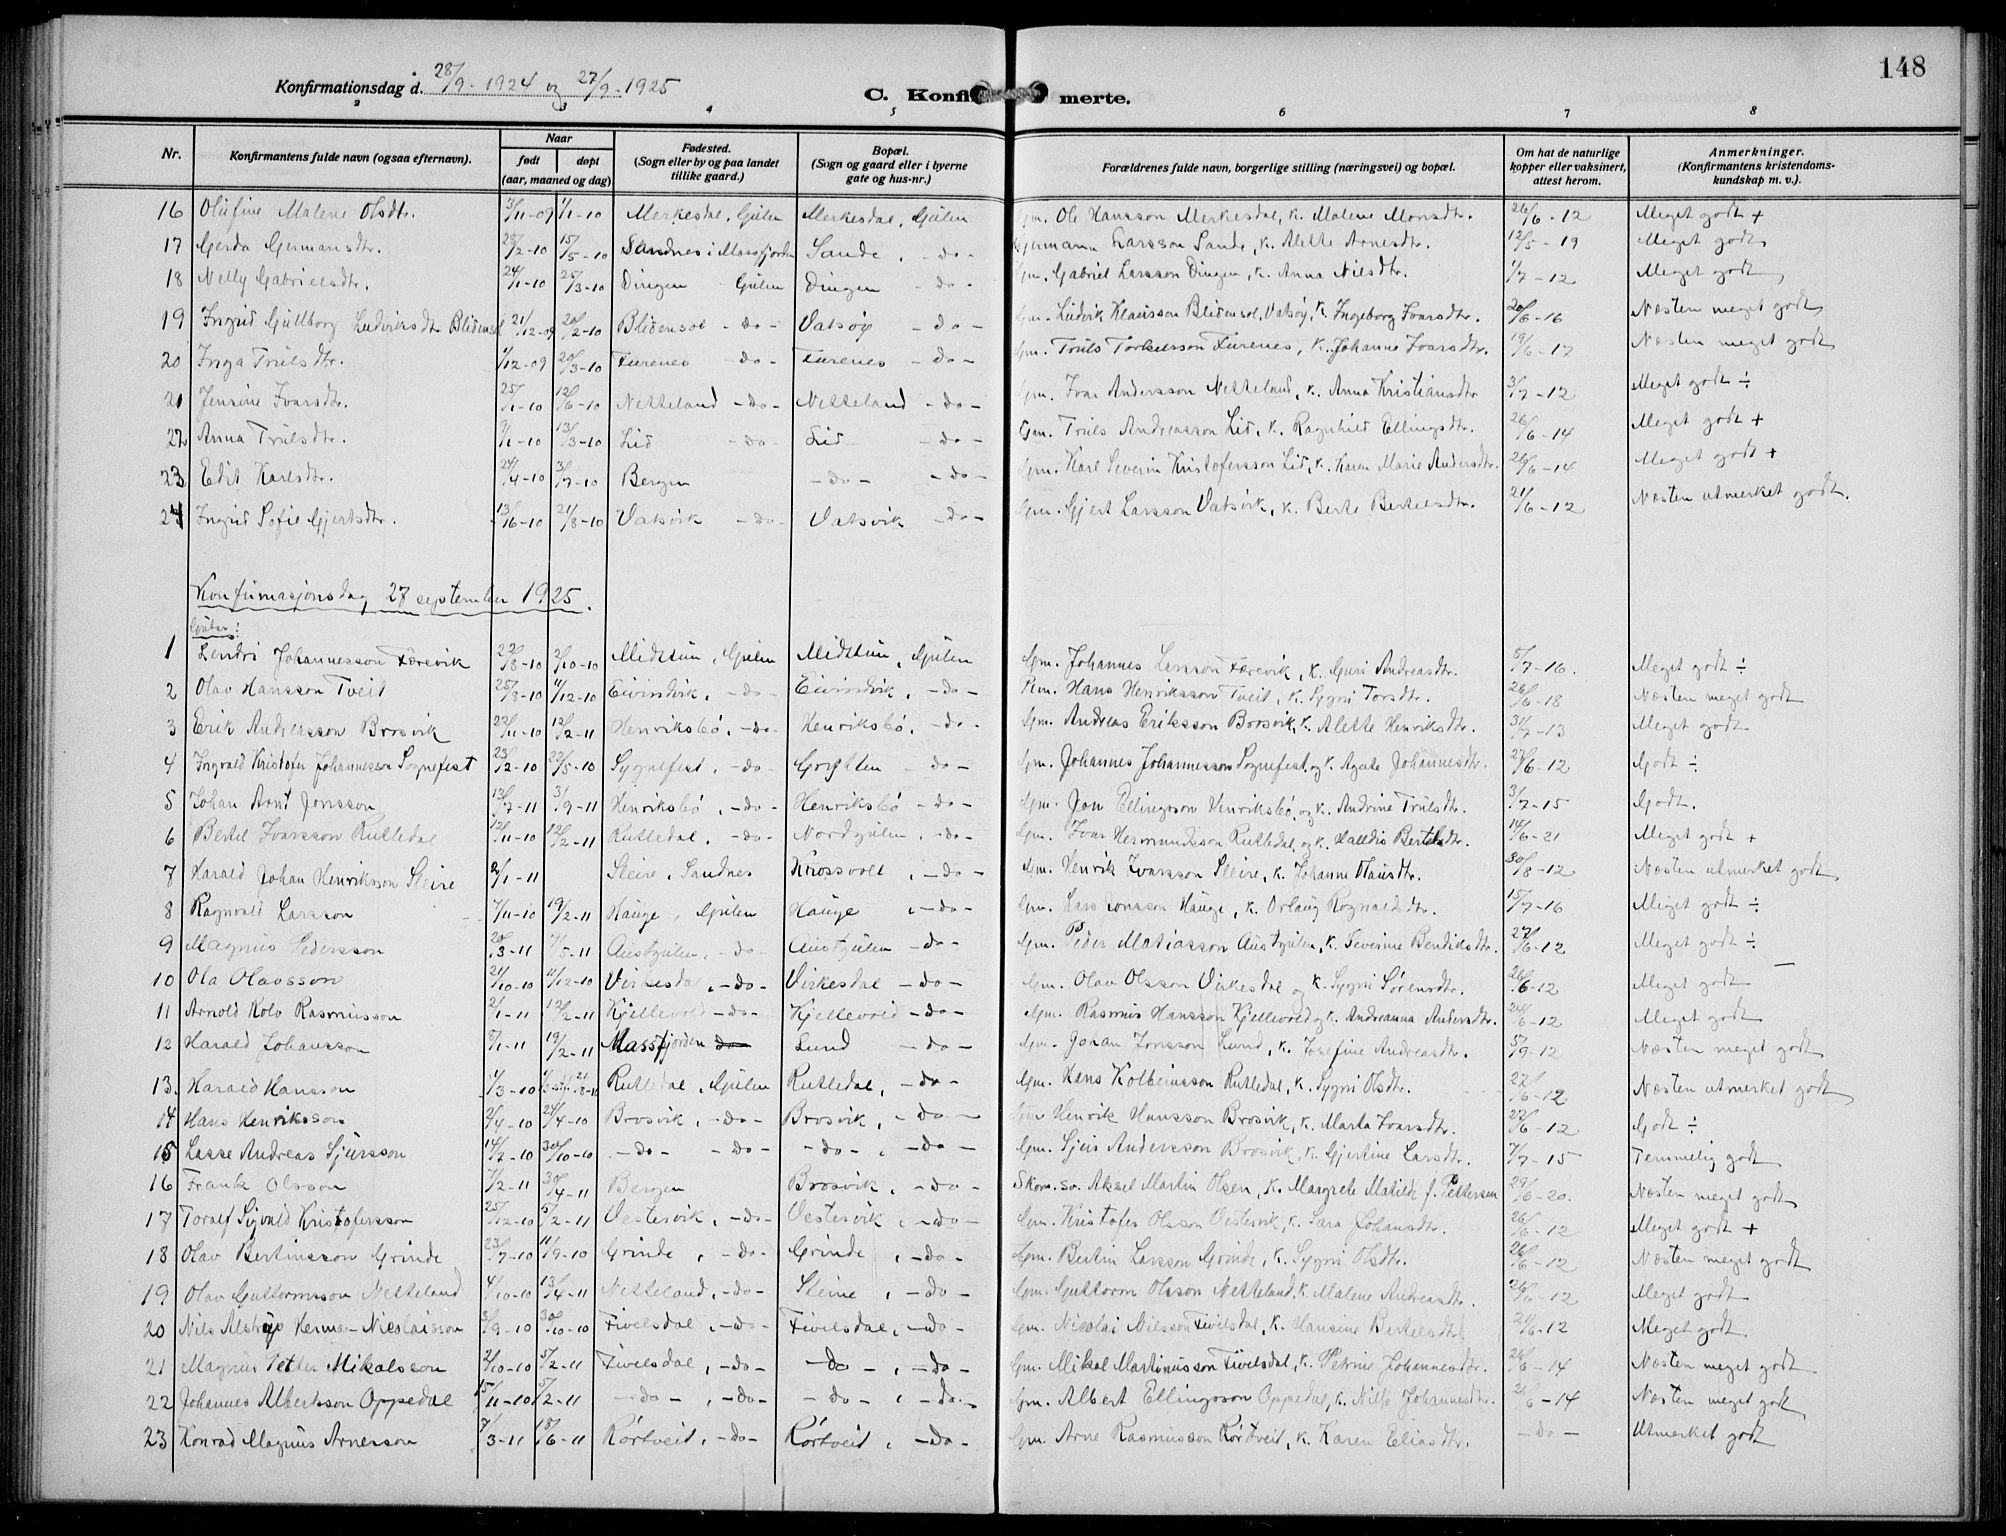 148
Konfirmationsdag d. 28/9 - 1924 og 27/9 - 1925
C. Konfirmerte.
2 3 4 5 6 7 8
Nr. | Konfirmantens fulde navn (ogsaa efternavn). | Naar født døpt (aar, maaned og dag) | Fødested. (Sogn eller by og paa landet tillike gaard.) | Bopæl. (Sogn og gaard eller i byerne gate og hus-nr.) | Forældrenes fulde navn, borgerlige stilling (næringsvei) og bopæl. | Om hat de naturlige kopper eller vaksinert, attest herom. | Anmerkninger. (Konfirmantens kristendomskundskap m. v.).
16 Olufine Malene Olsdtr. 3/11-09 1/1-10 Merkesdal, Gulen Merkesdal, Gulen Gm. Ole Hansson Merkesdal, K. Malene Monsdtr. 26/6-12 Meget godt +
17 Gerda Germansdtr. 28/2-10 15/5-10 Sandnes i Massfjorden Sande, -do- Germann Larsson Sande, K. Alette Arnesdtr. 12/5-19 Meget godt
18 Nelly Gabrielsdtr. 24/1-10 25/3-10 Dingen Gulen Dingen -do- Gm. Gabriel Larsson Dingen, K. Anna Nilsdtr. 1/7-12 Meget godt
19 Ingrid Gullborg Ludviksdtr Blidensol 21/12-09 20/2-10 Blidensol -do- Vatsøy -do- Gm. Ludvik Klausson Blidensol, Vatsøy, K. Ingeborg Ivarsdtr. 20/6-16 Næsten meget godt
20 Inga Trulsdtr. 1/12-09 20/3-10 Furenes -do- Furenes -do- Gm. Truls Torkelsson Furenes, K. Johanne Ivarsdtr. 19/6-17 Næsten meget godt
21 Jensine Ivarsdtr. 25/1-10 12/6-10 Netteland -do- Netteland -do- Gm. Ivar Andersson Netteland, K. Anna Kristiansdtr 3/7-12 Meget godt ÷
22 Anna Trulsdtr. 9/1-10 13/3-10 Lid -do- Lid -do- Gm. Truls Andreasson Lid, K. Ragnhild Ellingsdtr. 26/6-14 Meget godt +
23 Edit Karlsdtr. 24/4-10 3/7-10 Bergen -do- -do- Gm. Karl Severin Kristofersson Lid, K. Karen Marie Andersdtr. 26/6-14 Meget godt +
24 Ingrid Sofie Gjertsdtr. 13/6-10 21/8-10 Vatsvik -do- Vatsvik -do- Gm. Gjert Larsson Vatsvik, K. Berte Bertelsdtr. 21/6-12 Næsten utmerket godt.
Konfirmasjonsdag 27 september 1925.
Guter:
1 Sendri Johannesson Færevik 22/8-10 2/10-10 Midttun, Gulen Midttun, Gulen Gm. Johannes Larsson Færevik, K. Guri Andreasdtr. 5/7-16. Meget godt ÷
2 Olav Hansson Tveit 25/8-10 11/12-10 Eivindvik, -do- Eivindvik, -do- Hans Henriksson Tveit, K. Sygni Torsdtr. 26/6-18 Næsten meget godt
3 Erik Andreasson Brosvik 22/11-10 12/2-11 Henriksbø, -do- Henriksbø, -do- Gm. Andreas Eriksson Brosvik, K. Alette Henriksdtr. 31/7-13 Meget godt
4 Ingvald Kristofer Johannesson Sognefest 23/2-10 22/5-10 Sygnefest, -do- -do- Gm. Johannes Johannesson Sognefest og K. Agate Johannesdtr. 27/6-12 Godt ÷
5 Johan Arnt Jonsson 13/7-11 3/9-11 Henriksbø, -do- Henriksbø -do- Gm. Jon Ellingsson Henriksbø, og K. Andrine Trulsdtr. 3/7-15 Godt.
6 Bertel Ivarsson Rutledal 12/11-10 12/2-11 Rutledal, -do- Nordgulen, -do- Gm. Ivar Hermundsson Rutledal, og K. Valldis Bertelsdtr. 14/6-21 Meget godt +
7 Harald Johan Henriksson Sleire 2/1-11 Sleire, Sandnes Krossvoll, -do- Gm. Henrik Ivarsson Sleire, K. Johanne Olausdtr. 30/8-12 Næsten utmerket godt
8 Ragnvald Larsson 7/11-10 19/2-11 Hauge, Gulen Hauge, -do- Gm. Lars Jonsson Hauge, K. Orlaug Rognaldsdtr. 15/7-16 Meget godt ÷
9 Magnus Pedersson 20/3-11 7/5-11 Austgulen, -do- Austgulen -do- Gm. Peder Matiasson Austgulen, K. Severine Bendiksdtr. 27/6-12 Meget godt ÷
10 Ola Olavsson 21/10-10 11/12-10 Virkesdal, -do- Virkesdal -do- Gm. Olav Olsson Virkesdal og K. Sygni Sørensdtr. 26/6-12 Meget godt
11 Arnold Kolv Rasmusson 2/1-11 12/2-11 Kjellevold -do- Kjellevold -do- Gm. Rasmus Hansson Kjellevold og K. Andreanna Andersdtr. 24/6-12 Meget godt
12 Harald Johansson 8/1-11 19/2-11 Massfjorden do Lund -do- Gm. Johan Jonsson Lund, K. Josefine Andreasdtr. 5/9-12 Næsten meget godt
13. Harald Hansson 1/3-10 Rutledal, Gulen Rutledal, -do- Gm. Hans Kolbeinsson Rutledal, K. Sygni Olsdtr. 27/6-12 Næsten utmerket godt
14 Hans Henriksson 2/4-10 24/4-10 Brosvik, -do- Brosvik, -do- Gm. Henrik Hansson Brosvik, K. Marta Ivarsdtr. 22/6-12 Godt ÷
15 Lasse Andreas Sjursson 14/7-10 30/10-10 -do- -do- -do-, -do- Gm. Sjur Andersson Brosvik, K. Gjertine Larsdtr. 7/7-15 Temmelig godt
16 Frank Olsson 7/2-11 30/4-11 Bergen Brosvik, -do- Skom. sv. Aksel Martin Olsen, K. Margrete Matilde f. Pettersen 29/6-20. Næsten meget godt
17 Toralf Sigvald Kristofersson 25/12-10 5/2-11 Vestervik, -do- Vestervik, -do- Gm. Kristofer Olsson Vestervik, K. Sara Johansdtr. 26/6-12 Meget godt +
18 Olav Bertinsson Grinde 23/7-10 11/9-10 Grinde, -do- Grinde, -do- Gm. Bertin Larsson Grinde, K. Sygni Olsdtr. 26/6-12 Næsten meget godt
19 Olav Guttormsson Netteland 4/10-10 13/4-11 Netteland, -do- Steine, -do- Gm. Guttorm Olsson Netteland, K. Malene Andreasdtr. 26/6-12 Meget godt
20 Nils Alstrup Herma-Nicolaisson 3/9-10 30/10-10 Fivelsdal, -do- Fivelsdal, -do- Gm. Nicolai Nilsson Fivelsdal, K. Hansine Bertelsdtr. 21/6-12 Meget godt
21 Magnus Petter Mikalsson 2/10-10 5/2-11 Fivelsdal, -do- -do-, -do- Gm. Mikal Martinusson Fivelsdal, K. Petrine Johannesdtr. 26/6-14 Næsten meget godt
22 Johannes Albertsson Oppedal 15/11-10 5/2-11 -do-, -do- -do-, -do- Gm. Albert Ellingsson Oppedal, K. Johannesdtr. 26/6-14 Næsten meget godt
23 Konrad Magnus Arnesson 7/3-11 18/6-11 Rørtveit, -do- Rørtveit, -do- Gm. Arne Rasmusson Rørtveit, K. Karen Eliasdtr. -do- Utmerket godt